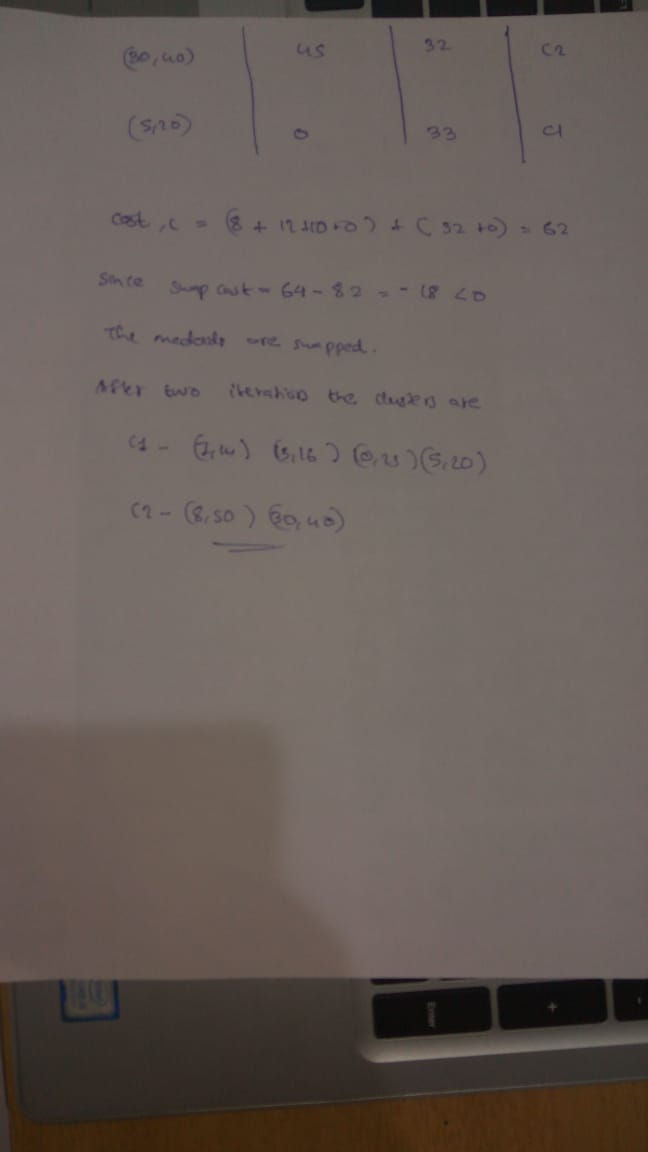 (30,40) 45 32 C2
(5,20) 0 33 C1
cost, c = (8 + 12 +10 +0) + (32 +0) = 62
Since swap cost = 64 - 82 = -18 <0
The medoids are swapped.
After two iteration the clusters are
C1 - (7,14) (3,16) (0,25) (5,20)
C2 - (8,50) (30,40)
Enter
+